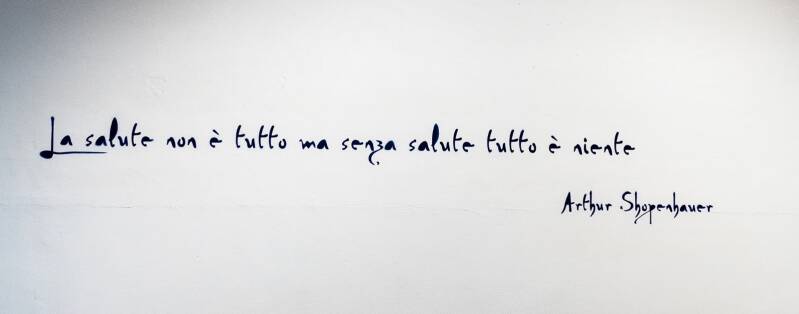 La salute non è tutto ma senza salute tutto è niente
Arthur Shopenhauer